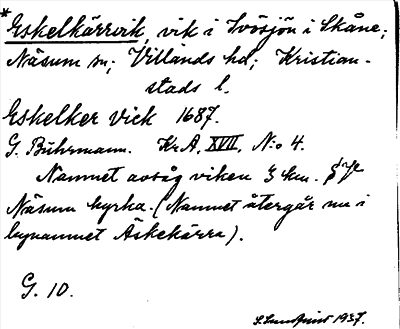 *Eskelkärrvik, vik i Ivösjön i Skåne;
Näsum sn; Villands hd; Kristian-
stads l.
Eskelker Vick 1687.
G. Bührmann. Kr A, XVII, N:o 4.
Namnet avsåg viken 3 km. s/v
Näsum kyrka. (Namnet återgår nu i
bynamnet Äskekärra).
G. 10.
S. Lundqvist 1937.